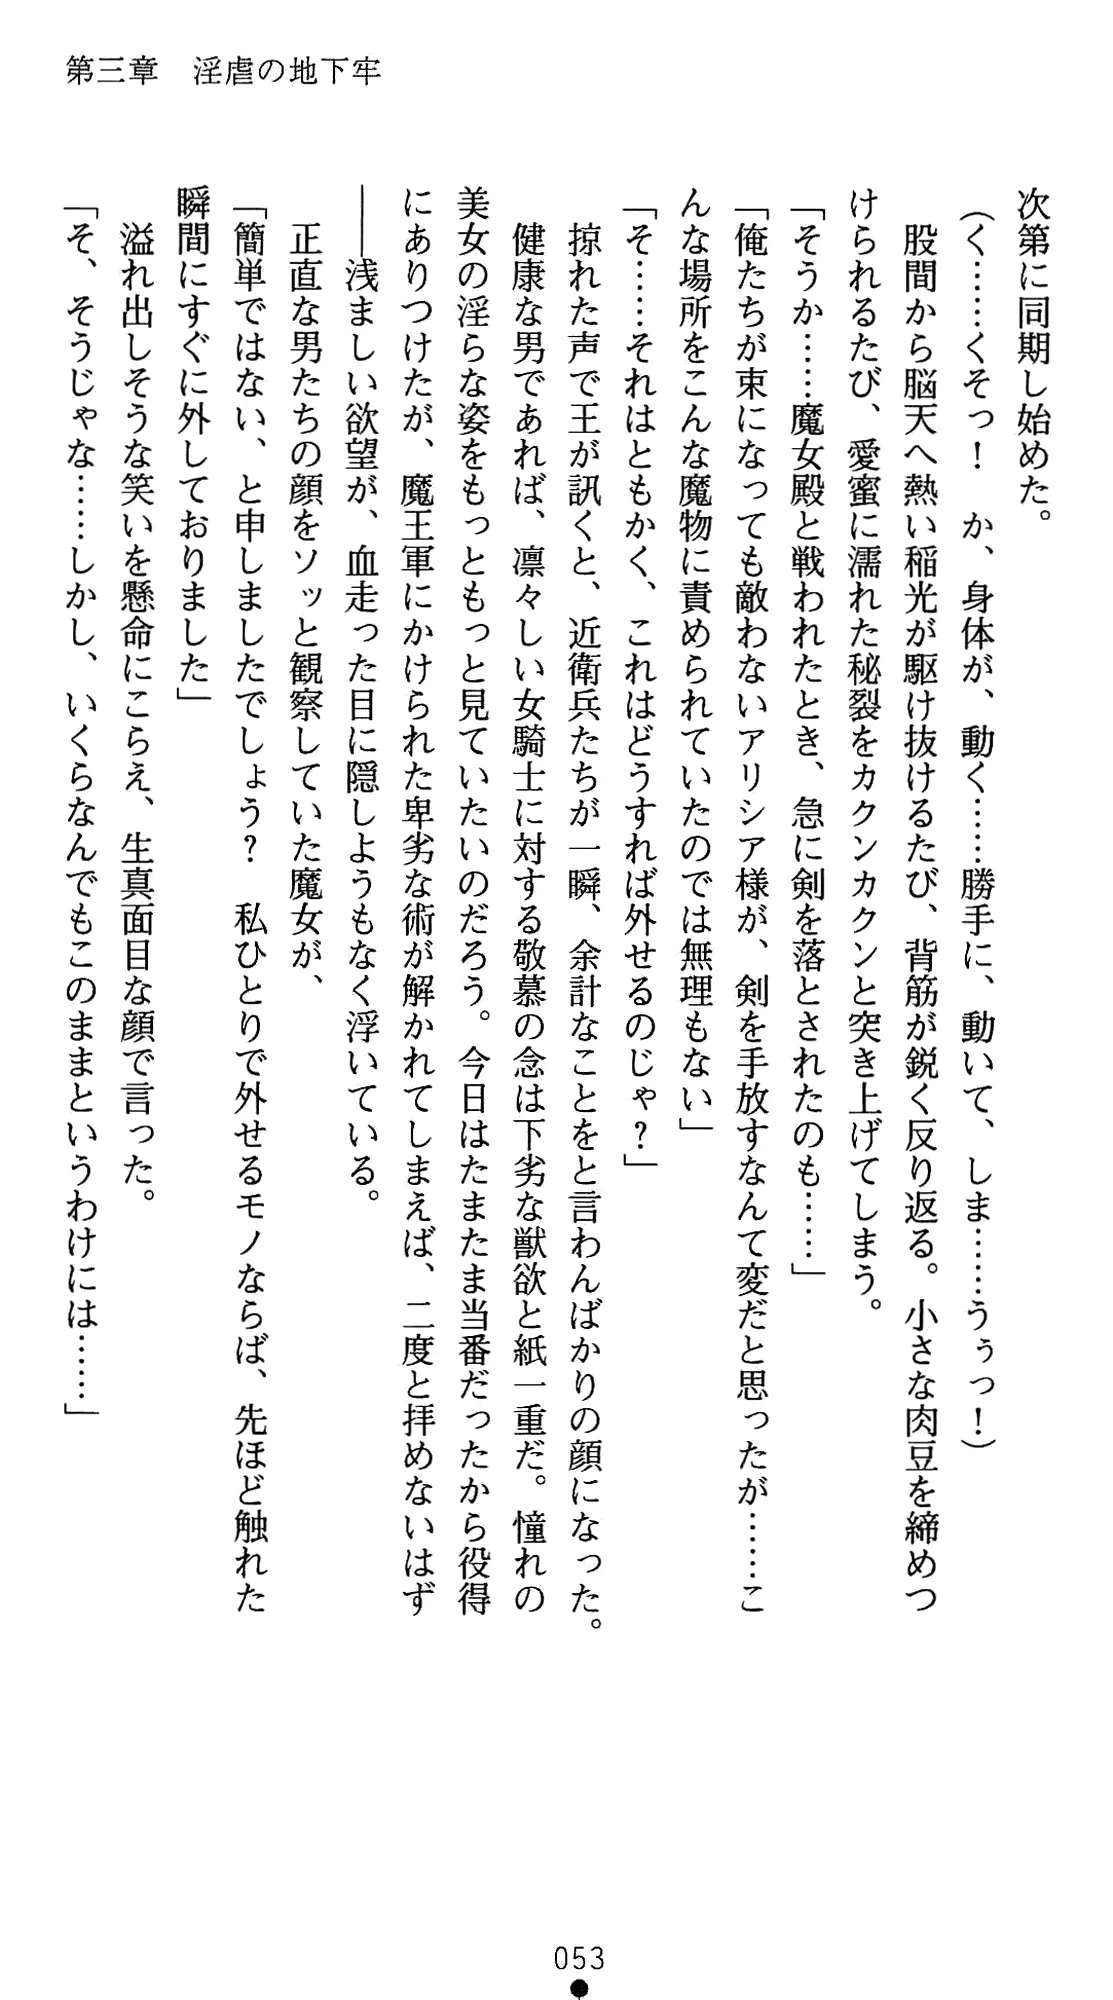 第三章　淫虐の地下牢
次第に同期し始めた。
（く……くそっ！　か、身体が、動く……勝手に、動いて、しま……うぅっ！）
　股間から脳天へ熱い稲光が駆け抜けるたび、背筋が鋭く反り返る。小さな肉豆を締めつ
けられるたび、愛蜜に濡れた秘裂をカクンカクンと突き上げてしまう。
「そうか……魔女殿と戦われたとき、急に剣を落とされたのも……」
「俺たちが束になっても敵わないアリシア様が、剣を手放すなんて変だと思ったが……こ
んな場所をこんな魔物に責められていたのでは無理もない」
「そ……それはともかく、これはどうすれば外せるのじゃ？」
　掠れた声で王が訊くと、近衛兵たちが一瞬、余計なことをと言わんばかりの顔になった。
　健康な男であれば、凛々しい女騎士に対する敬慕の念は下劣な獣欲と紙一重だ。憧れの
美女の淫らな姿をもっともっと見ていたいのだろう。今日はたまたま当番だったから役得
にありつけたが、魔王軍にかけられた卑劣な術が解かれてしまえば、二度と拝めないはず
――浅ましい欲望が、血走った目に隠しようもなく浮いている。
　正直な男たちの顔をソッと観察していた魔女が、
「簡単ではない、と申しましたでしょう？　私ひとりで外せるモノならば、先ほど触れた
瞬間にすぐに外しておりました」
　溢れ出しそうな笑いを懸命にこらえ、生真面目な顔で言った。
「そ、そうじゃな……しかし、いくらなんでもこのままというわけには……」
053